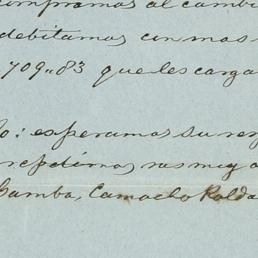 compramos al cambi
debitamos con mas
709"83 que les carga
o: esperamos su re
repetimos nos muy a
Gamba, Camacho Rolda